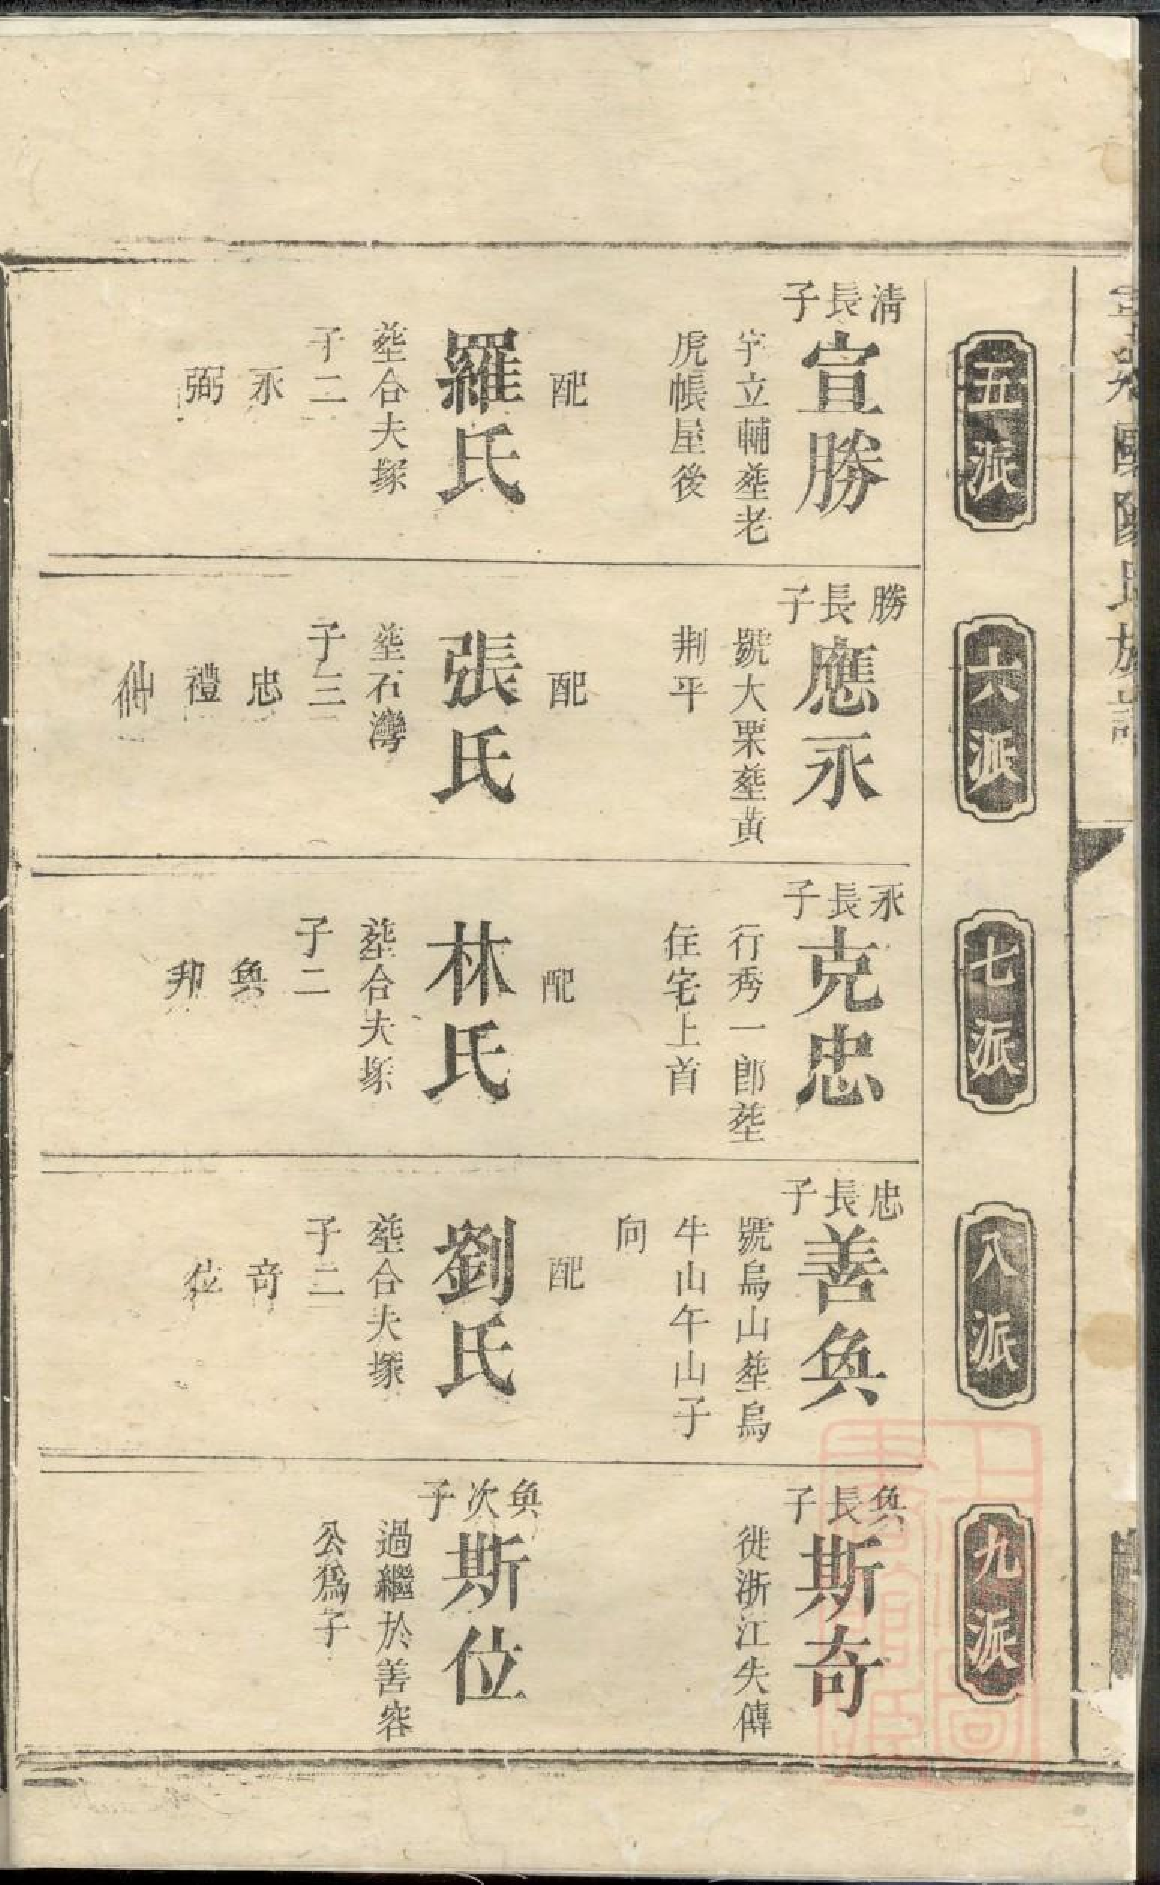 歐陽氏族譜
五派
清長子
宣勝
字立輔塟老
虎帳屋後
配
羅氏
塟合夫塚
子二
永
弼
六派
勝長子
應永
號大栗塟黃
荆平
配
張氏
塟石灣
子三
忠
禮
仙
七派
永長子
克忠
行秀一郎塟
住宅上首
配
林氏
塟合夫塚
子二
奂
邦
八派
忠長子
善奂
號烏山塟烏
牛山午山子
向
配
劉氏
塟合夫塚
子二
奇
位
九派
奂長子
斯奇
徙浙江失傳
奂次子
斯位
過繼於善容
公爲子